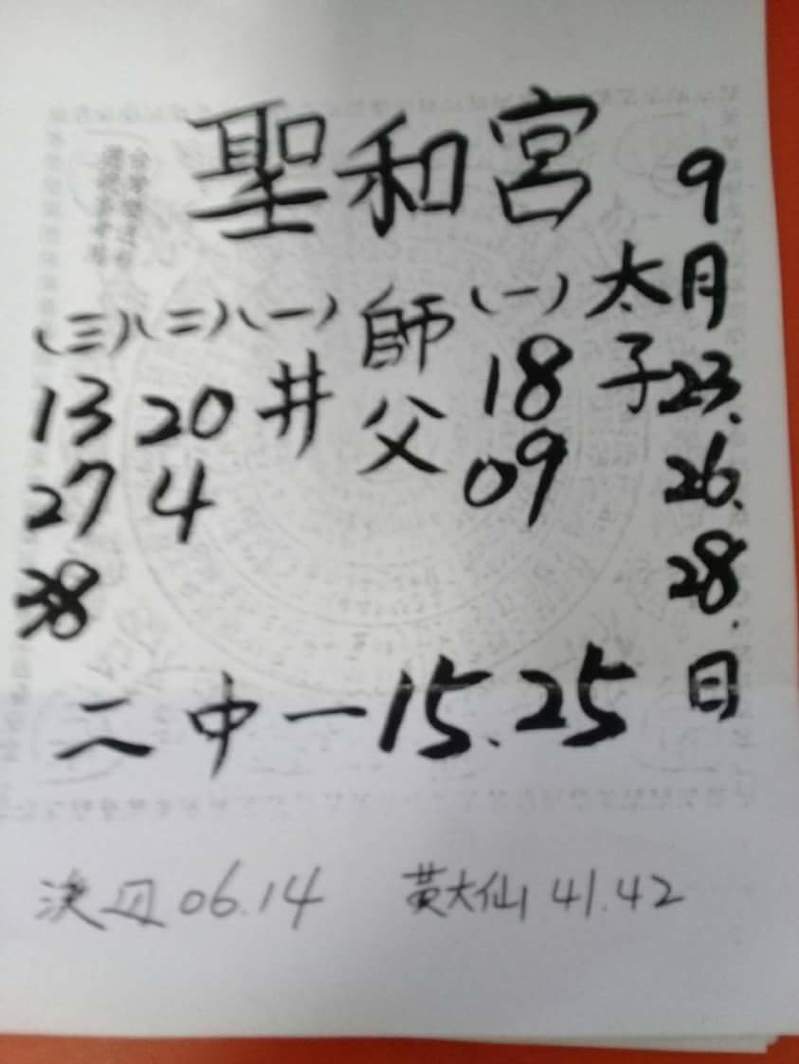 聖和宮
9月23.26.28.日
太子
(一)
18
09
師父
(一)
井
(二)
20
4
(三)
13
27
38
二中一15.25
06.14
黄大仙 41.42